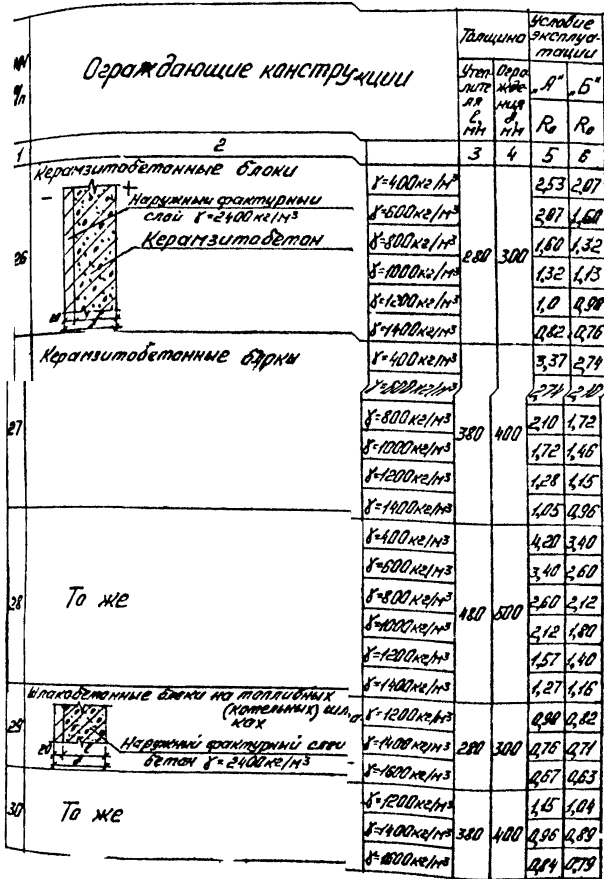 NN п/п
Ограждающие конструкции
Толщина
Условие эксплуатации
Утеплителя l, мм
Ограждения δ, мм
„А"
„Б"
R₀ R₀
1 2 3 4 5 6
26
Керамзитобетонные блоки
- +
Наружный фактурный
слой γ=2400кг/м³
Керамзитобетон
20
280 300
γ=400кг/м³ 2,53 2,07
γ=600кг/м³ 2,07 1,60
γ=800кг/м³ 1,60 1,32
γ=1000кг/м³ 1,32 1,13
γ=1200кг/м³ 1,0 0,90
γ=1400кг/м³ 0,82 0,76
27
Керамзитобетонные блоки
380 400
γ=400кг/м³ 3,37 2,74
γ=600кг/м³ 2,74 2,10
γ=800кг/м³ 2,10 1,72
γ=1000кг/м³ 1,72 1,46
γ=1200кг/м³ 1,28 1,15
γ=1400кг/м³ 1,05 0,96
28
То же
480 500
γ=400кг/м³ 4,20 3,40
γ=600кг/м³ 3,40 2,60
γ=800кг/м³ 2,60 2,12
γ=1000кг/м³ 2,12 1,80
γ=1200кг/м³ 1,57 1,40
γ=1400кг/м³ 1,27 1,16
29
Шлакобетонные блоки на топливных
(котельных) шла-
ках
20 l
δ
Наружный фактурный слой
бетон γ=2400кг/м³
280 300
γ=1200кг/м³ 0,90 0,82
γ=1400кг/м³ 0,76 0,71
γ=1600кг/м³ 0,67 0,63
30
То же
380 400
γ=1200кг/м³ 1,15 1,04
γ=1400кг/м³ 0,96 0,89
γ=1600кг/м³ 0,84 0,79